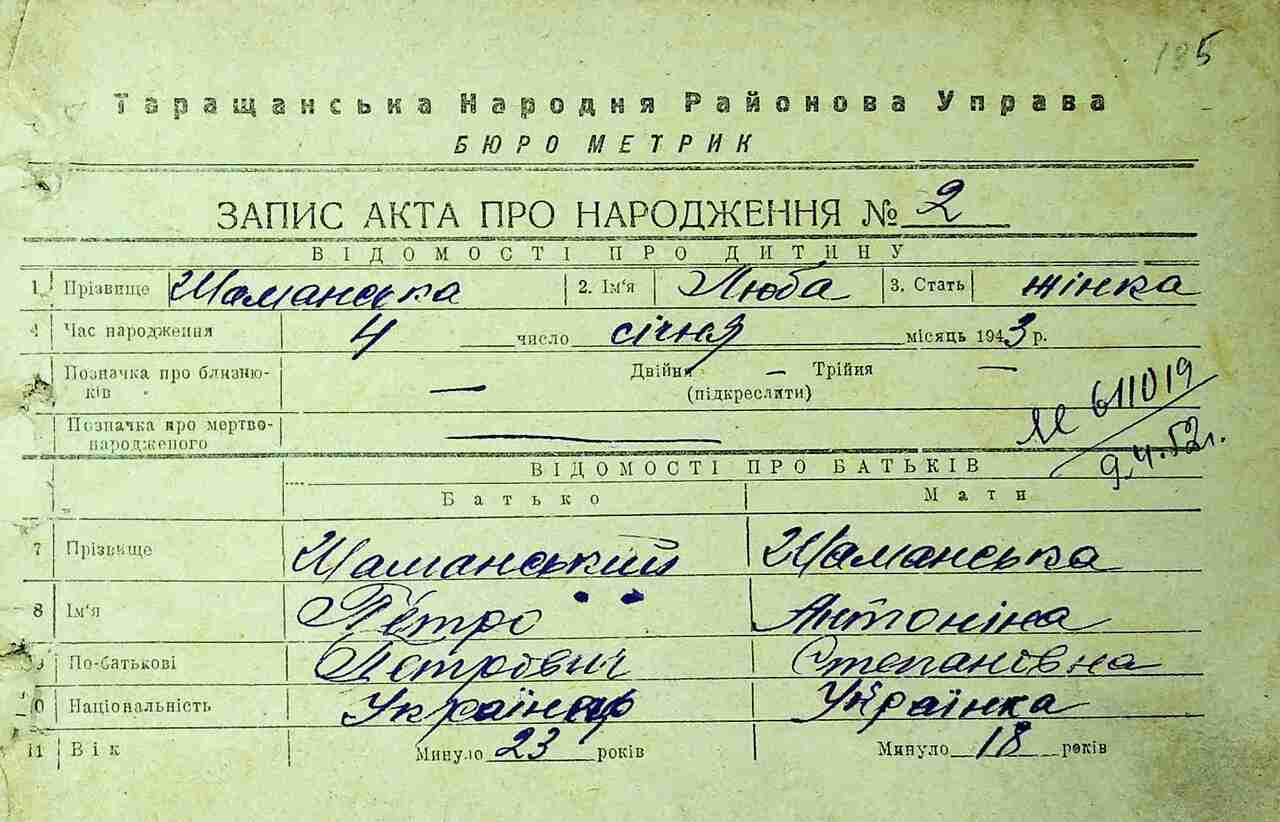 195
Таращанська Народня Районова Управа
БЮРО МЕТРИК
ЗАПИС АКТА ПРО НАРОДЖЕННЯ № 2
ВІДОМОСТІ ПРО ДИТИНУ
1 Прізвище Шаманська 2. Ім'я Люба 3. Стать жінка
4 Час народження 4 число січня місяць 1943 р.
Позначка про близню- — Двійня — Трійня —
ків (підкреслити)
Позначка про мертво-
народженого
М 611019
9.4.52г.
ВІДОМОСТІ ПРО БАТЬКІВ
Батько Мати
7 Прізвище Шаманський Шаманська
8 Ім'я Петро Антоніна
9 По-батькові Петрович Степановна
0 Національність Українец Українка
11 Вік Минуло 23 років Минуло 18 років